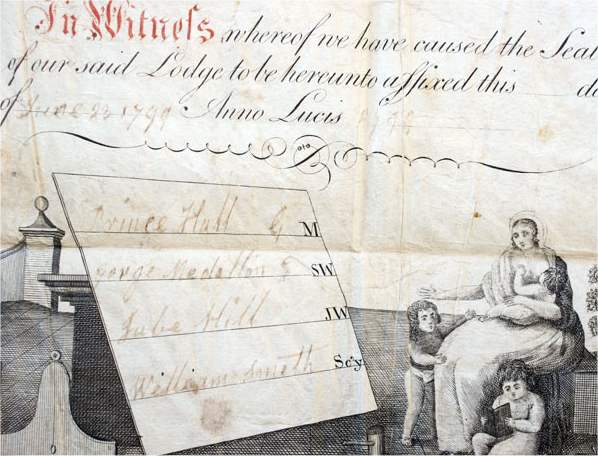 In Witness whereof we have caused the Seal
of our said Lodge to be hereunto affixed this da
of June 23 1799 Anno Lucis
Prince Hall G M
George Medallion SW
Jube Hill JW
William Smith Scy